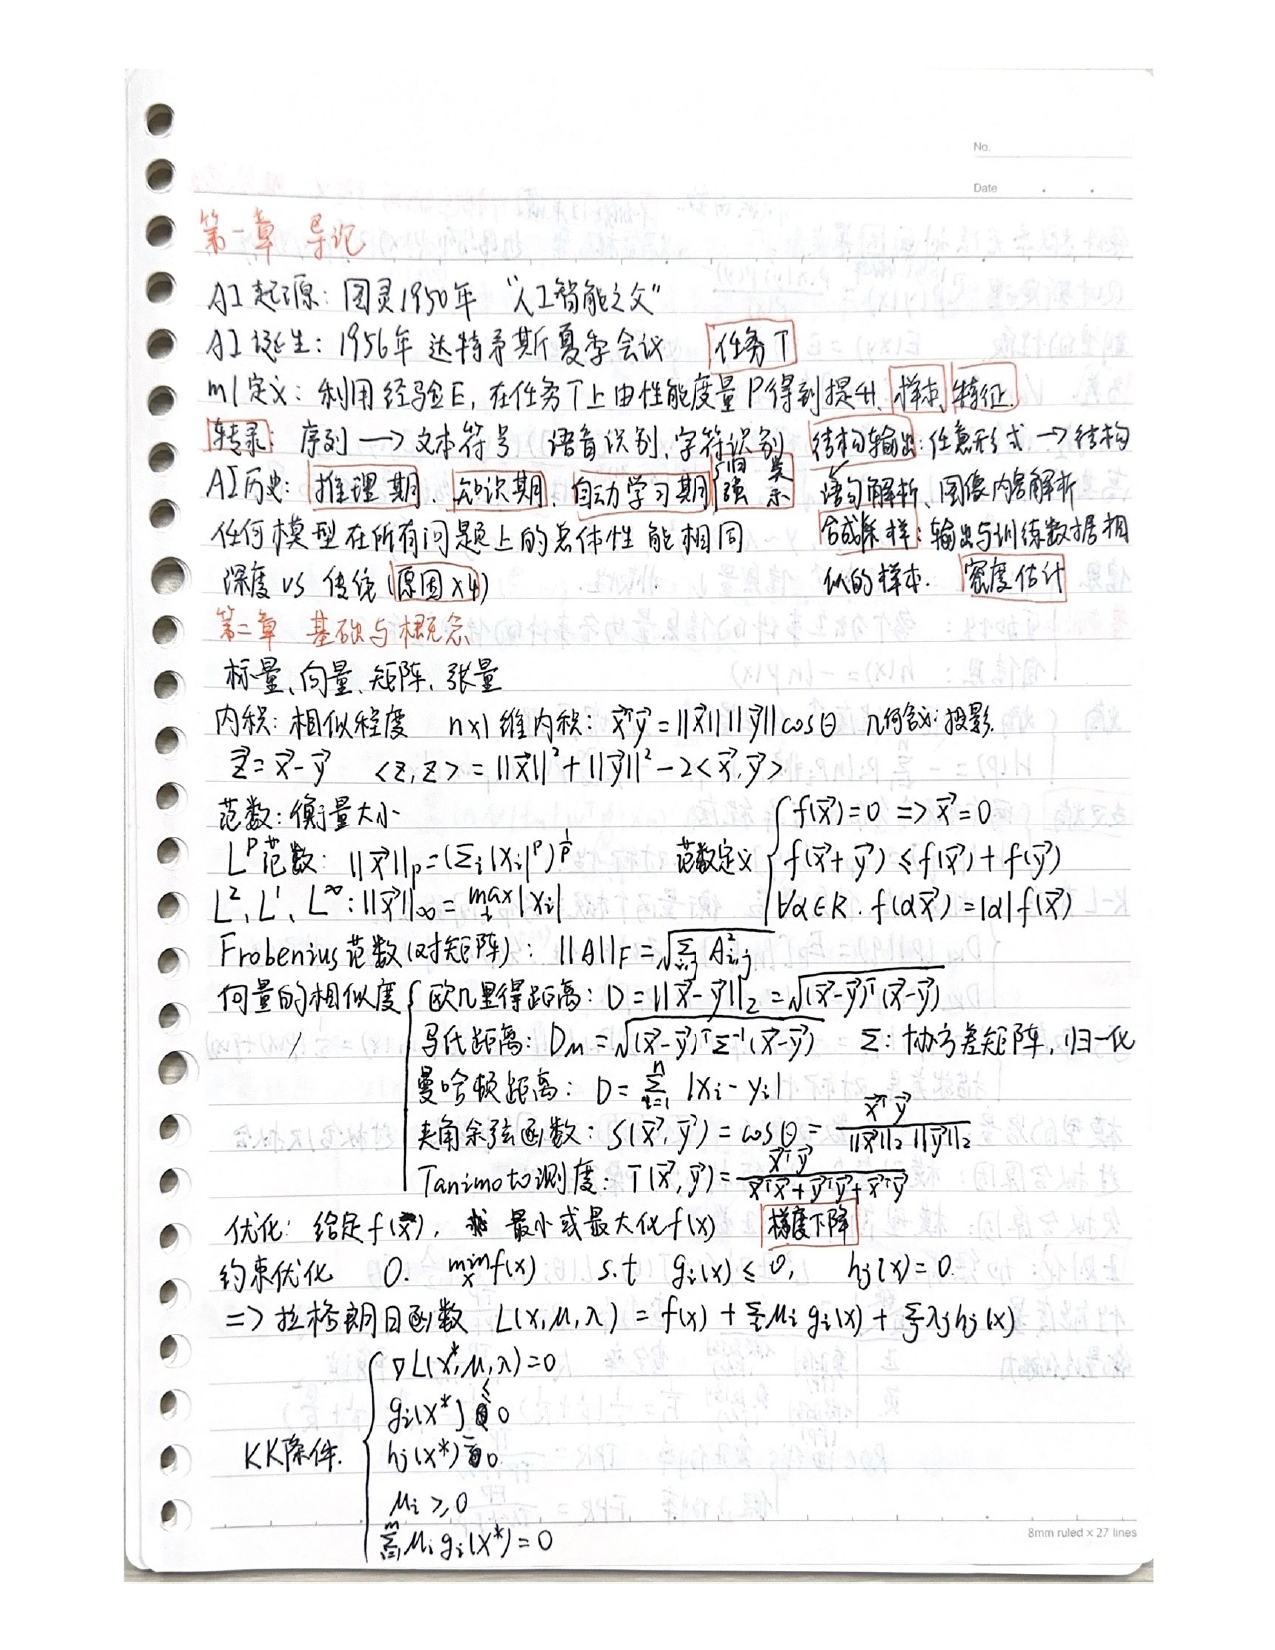 No.
Date
第一章 导论
AI起源：图灵1950年 “人工智能之父”
AI诞生：1956年 达特茅斯夏季会议 任务T
ml定义：利用经验E，在任务T上由性能度量P得到提升、样本、特征.
转录：序列 —> 文本符号 语音识别、字符识别 结构输出：任意形式 —> 结构
AI历史：推理期、知识期、自动学习期 归 类 强 示 语句解析、图像内容解析
任何模型在所有问题上的总体性能相同 合成采样：输出与训练数据相
深度 vs 传统（原因x4） 似的样本. 密度估计
第二章 基础与概念
标量、向量、矩阵、张量
内积：相似程度 n×1维内积：x⃗ᵀy⃗ = ||x⃗|| ||y⃗|| cosθ 几何含义：投影.
z⃗ = x⃗ - y⃗ <z, z> = ||x⃗||² + ||y⃗||² - 2<x⃗, y⃗>
范数：衡量大小 f(x⃗) = 0 => x⃗ = 0
Lᵖ范数：||x⃗||p = (Σi |xi|ᵖ)^(1/p) 范数定义 { f(x⃗ + y⃗) ≤ f(x⃗) + f(y⃗)
L², L¹、L^∞：||x⃗||∞ = max_i |xi| ∀α∈R. f(αx⃗) = |α| f(x⃗)
Frobenius范数(对矩阵)：||A||F = √(Σi,j A²i,j)
向量的相似度 { 欧几里得距离：D = ||x⃗ - y⃗||₂ = √((x⃗-y⃗)ᵀ(x⃗-y⃗))
马氏距离：Dm = √((x⃗-y⃗)ᵀ Σ⁻¹ (x⃗-y⃗)) Σ：协方差矩阵，归一化
曼哈顿距离：D = Σ_{i=1}^n |xi - yi|
夹角余弦函数：S(x⃗, y⃗) = cosθ = x⃗ᵀy⃗ / (||x⃗||₂ ||y⃗||₂)
Tanimoto测度：T(x⃗, y⃗) = x⃗ᵀy⃗ / (x⃗ᵀx⃗ + y⃗ᵀy⃗ + x⃗ᵀy⃗)
优化：给定f(x⃗)，求 最小或最大化f(x) 梯度下降
约束优化 0. min_x f(x) s.t gi(x) ≤ 0, hj(x) = 0.
=> 拉格朗日函数 L(x, μ, λ) = f(x) + Σi μi gi(x) + Σj λj hj(x)
∇L(x*, μ, λ) = 0
gi(x*) ≤ 0
KK条件. { hj(x*) = 0
μi ≥ 0
Σ_{i=1}^m μi gi(x*) = 0
8mm ruled × 27 lines